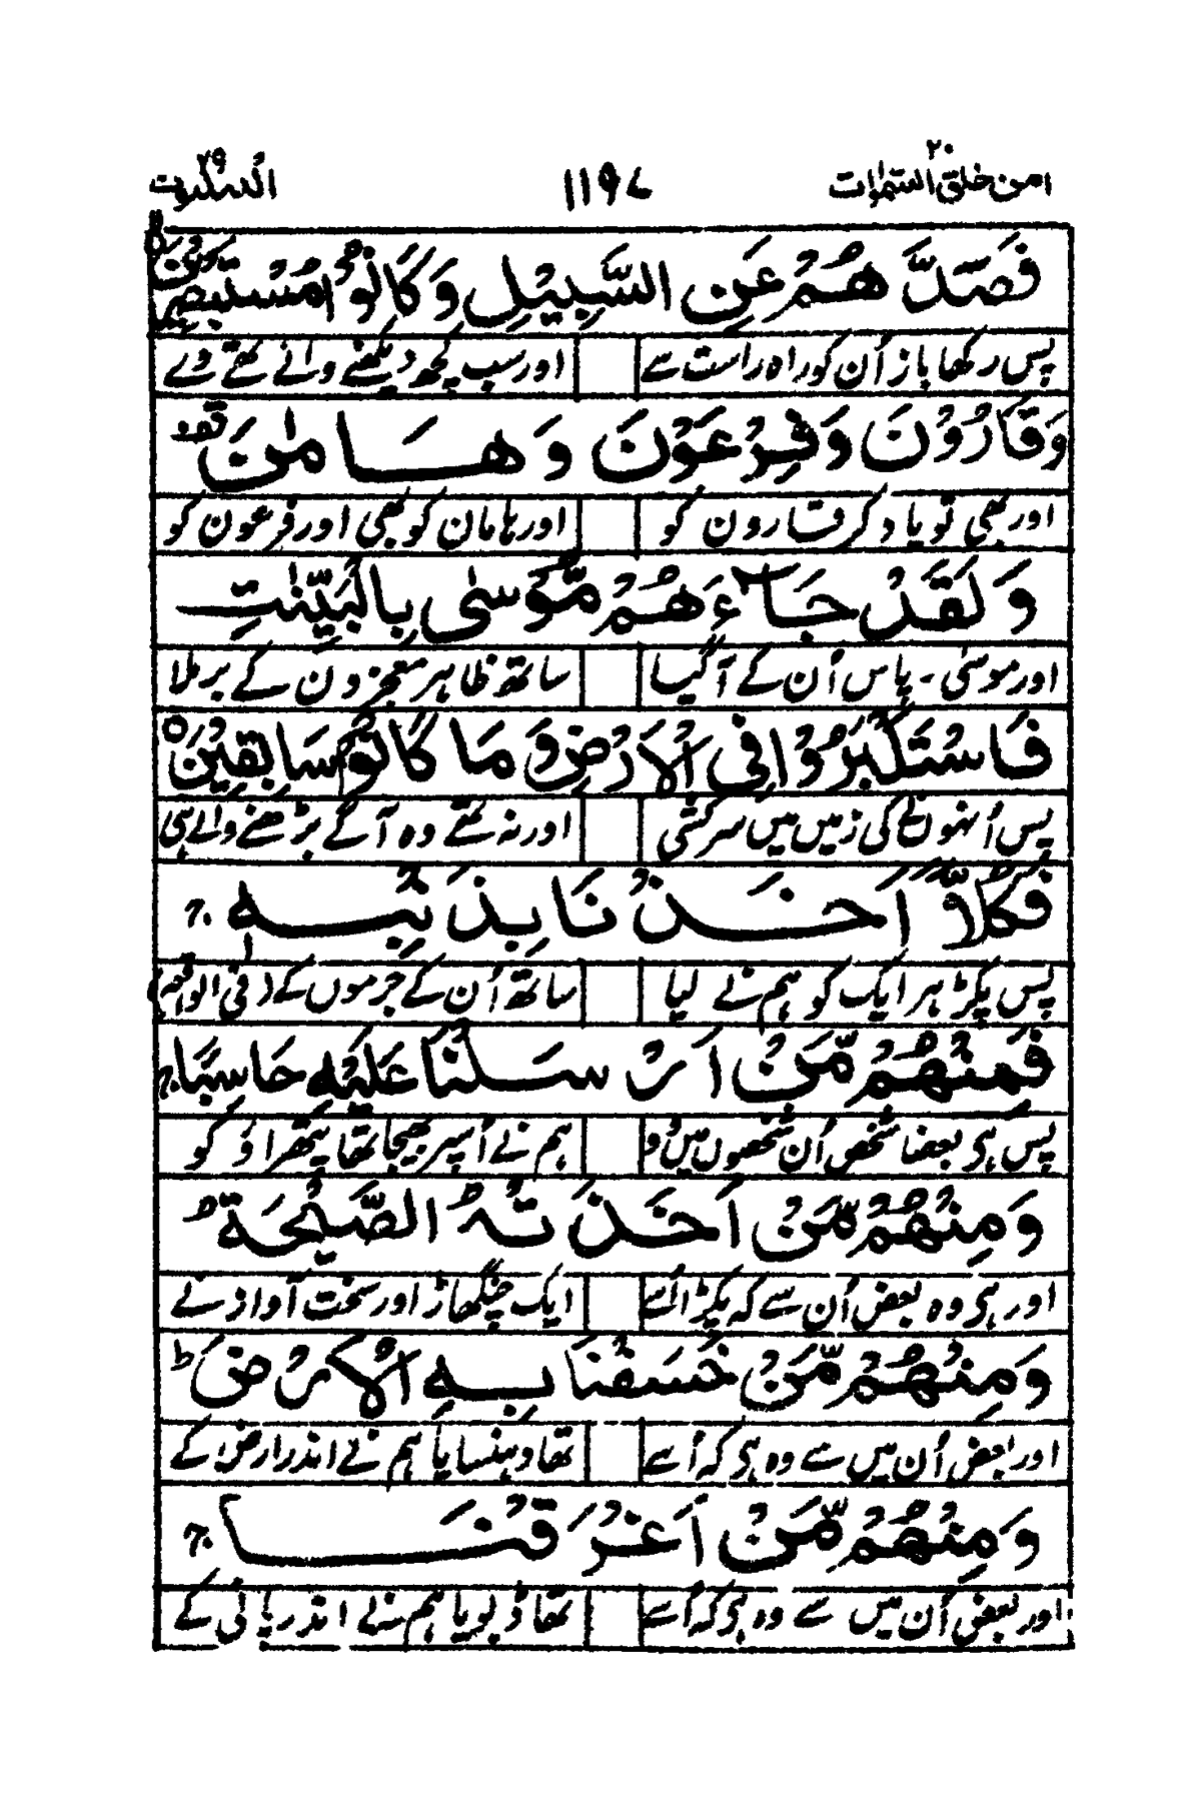 امن خلق السمٰوات ۲۰
۱۱۹۷
العنکبوت ۲۹
فَصَدَّ هُمْ عَنِ السَّبِيْلِ وَ كَانُوْا مُسْتَبْصِرِيْنَ
پس رکھا باز اُن کو راہ راست سے اور سب کچھ دیکھنے والے تھے وے
وَقَارُوْنَ وَفِرْعَوْنَ وَهَامٰنَ قف
اور بھی تو یاد کر قارون کو اور ہامان کو بھی اور فرعون کو
وَلَقَدْ جَآءَهُمْ مُّوْسٰى بِالْبَيِّنٰتِ
اور موسٰی۔ پاس اُن کے آگیا ساتھ ظاہر معجزون کے برملا
فَاسْتَكْبَرُوْا فِى الْاَرْضِ وَ مَا كَانُوْا سَابِقِيْنَ ○
پس اُنہوں نے کی زمیں میں سرکشی اور نہ تھے وہ آگے بڑھنے والے ہی
فَكُلًّا اَخَذْ نَا بِذَ نْبِهٖ ج
پس پکڑ ہر ایک کو ہم نے لیا ساتھ اُن کے جرموں کے (فی الواقعہ)
فَمِنْهُمْ مَّنْ اَرْ سَلْنَا عَلَيْهِ حَاصِبًا ج
پس ہی بعضا شخص اُن شخصوں میں وہ ہم نے اُسپر بھیجا تھا پتھراؤ کو
وَ مِنْهُمْ مَّنْ اَخَذَ تْهُ الصَّيْحَةُ
اور ہی وہ بعض اُن سے کہ پکڑا اُسے ایک چنگھاڑ اور سخت آواز نے
وَ مِنْهُمْ مَّنْ خَسَفْنَا بِهِ الْاَرْضَ ط
اور بعض اُن میں سے وہ ہی کہ اُسے تھا دھنسایا ہم نے اندر ارض کے
وَ مِنْهُمْ مَّنْ اَغْرَقْنَا ج
اور بعض اُن میں سے وہ ہی کہ اُسے تھا ڈبویا ہم نے اندر پانی کے